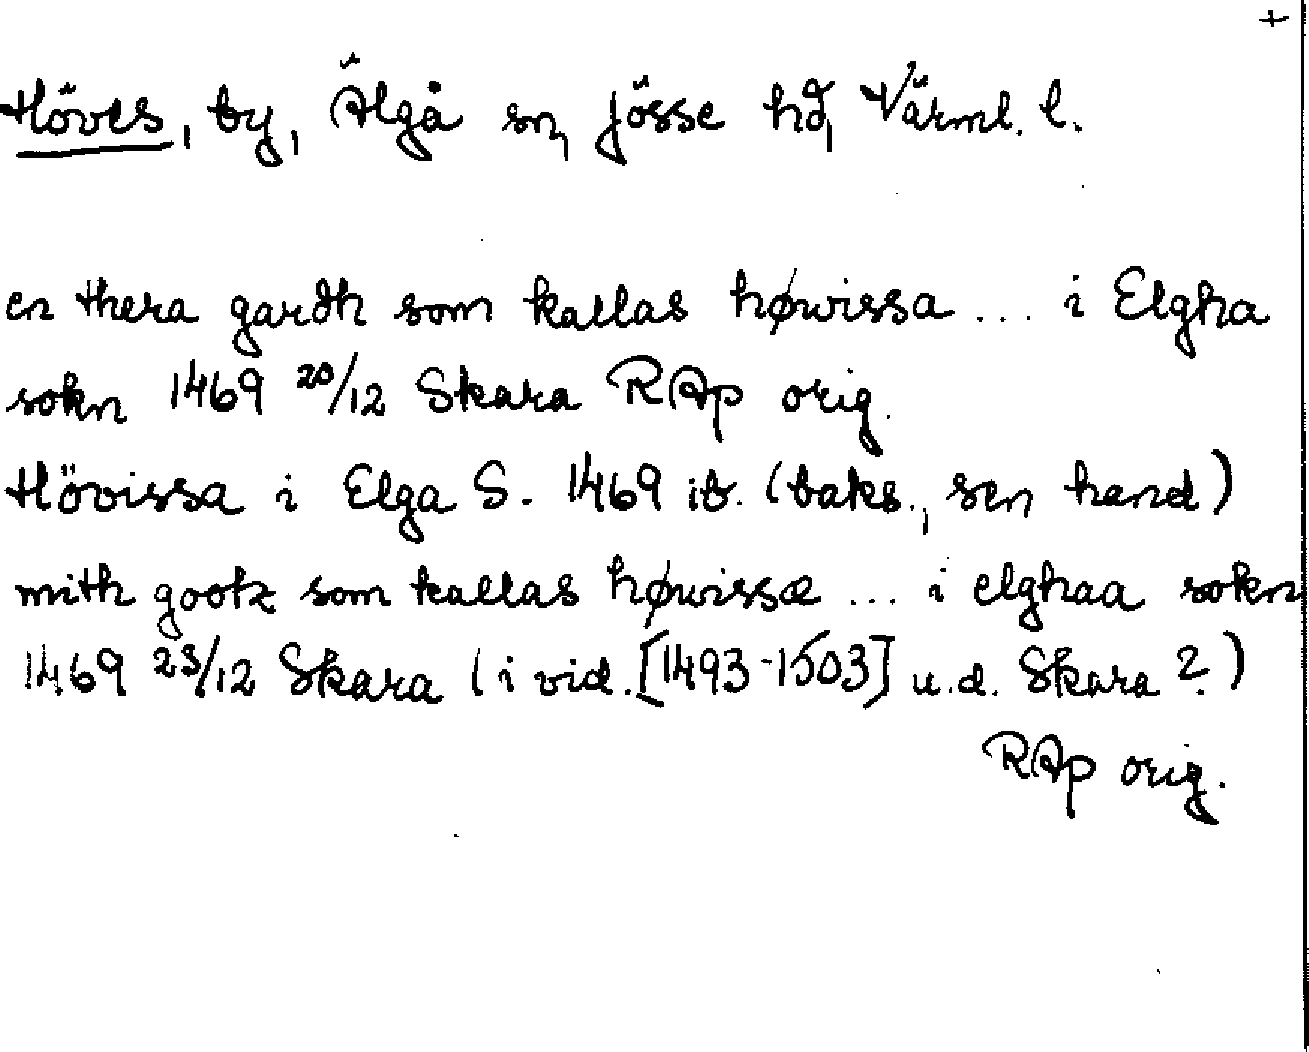 +
Höves, by, Älgå sn, Jösse hd, Värml. l.
en thera gardh som kallas høwissa ... i Elgha
sokn 1469 20/12 Skara RAp orig.
Hövissa i Elga S. 1469 ib. (baks., sen hand)
mith gootz som kallas høwissæ ... i elghaa sokn
1469 23/12 Skara (i vid. [1493-1503] u.d. Skara?)
RAp orig.